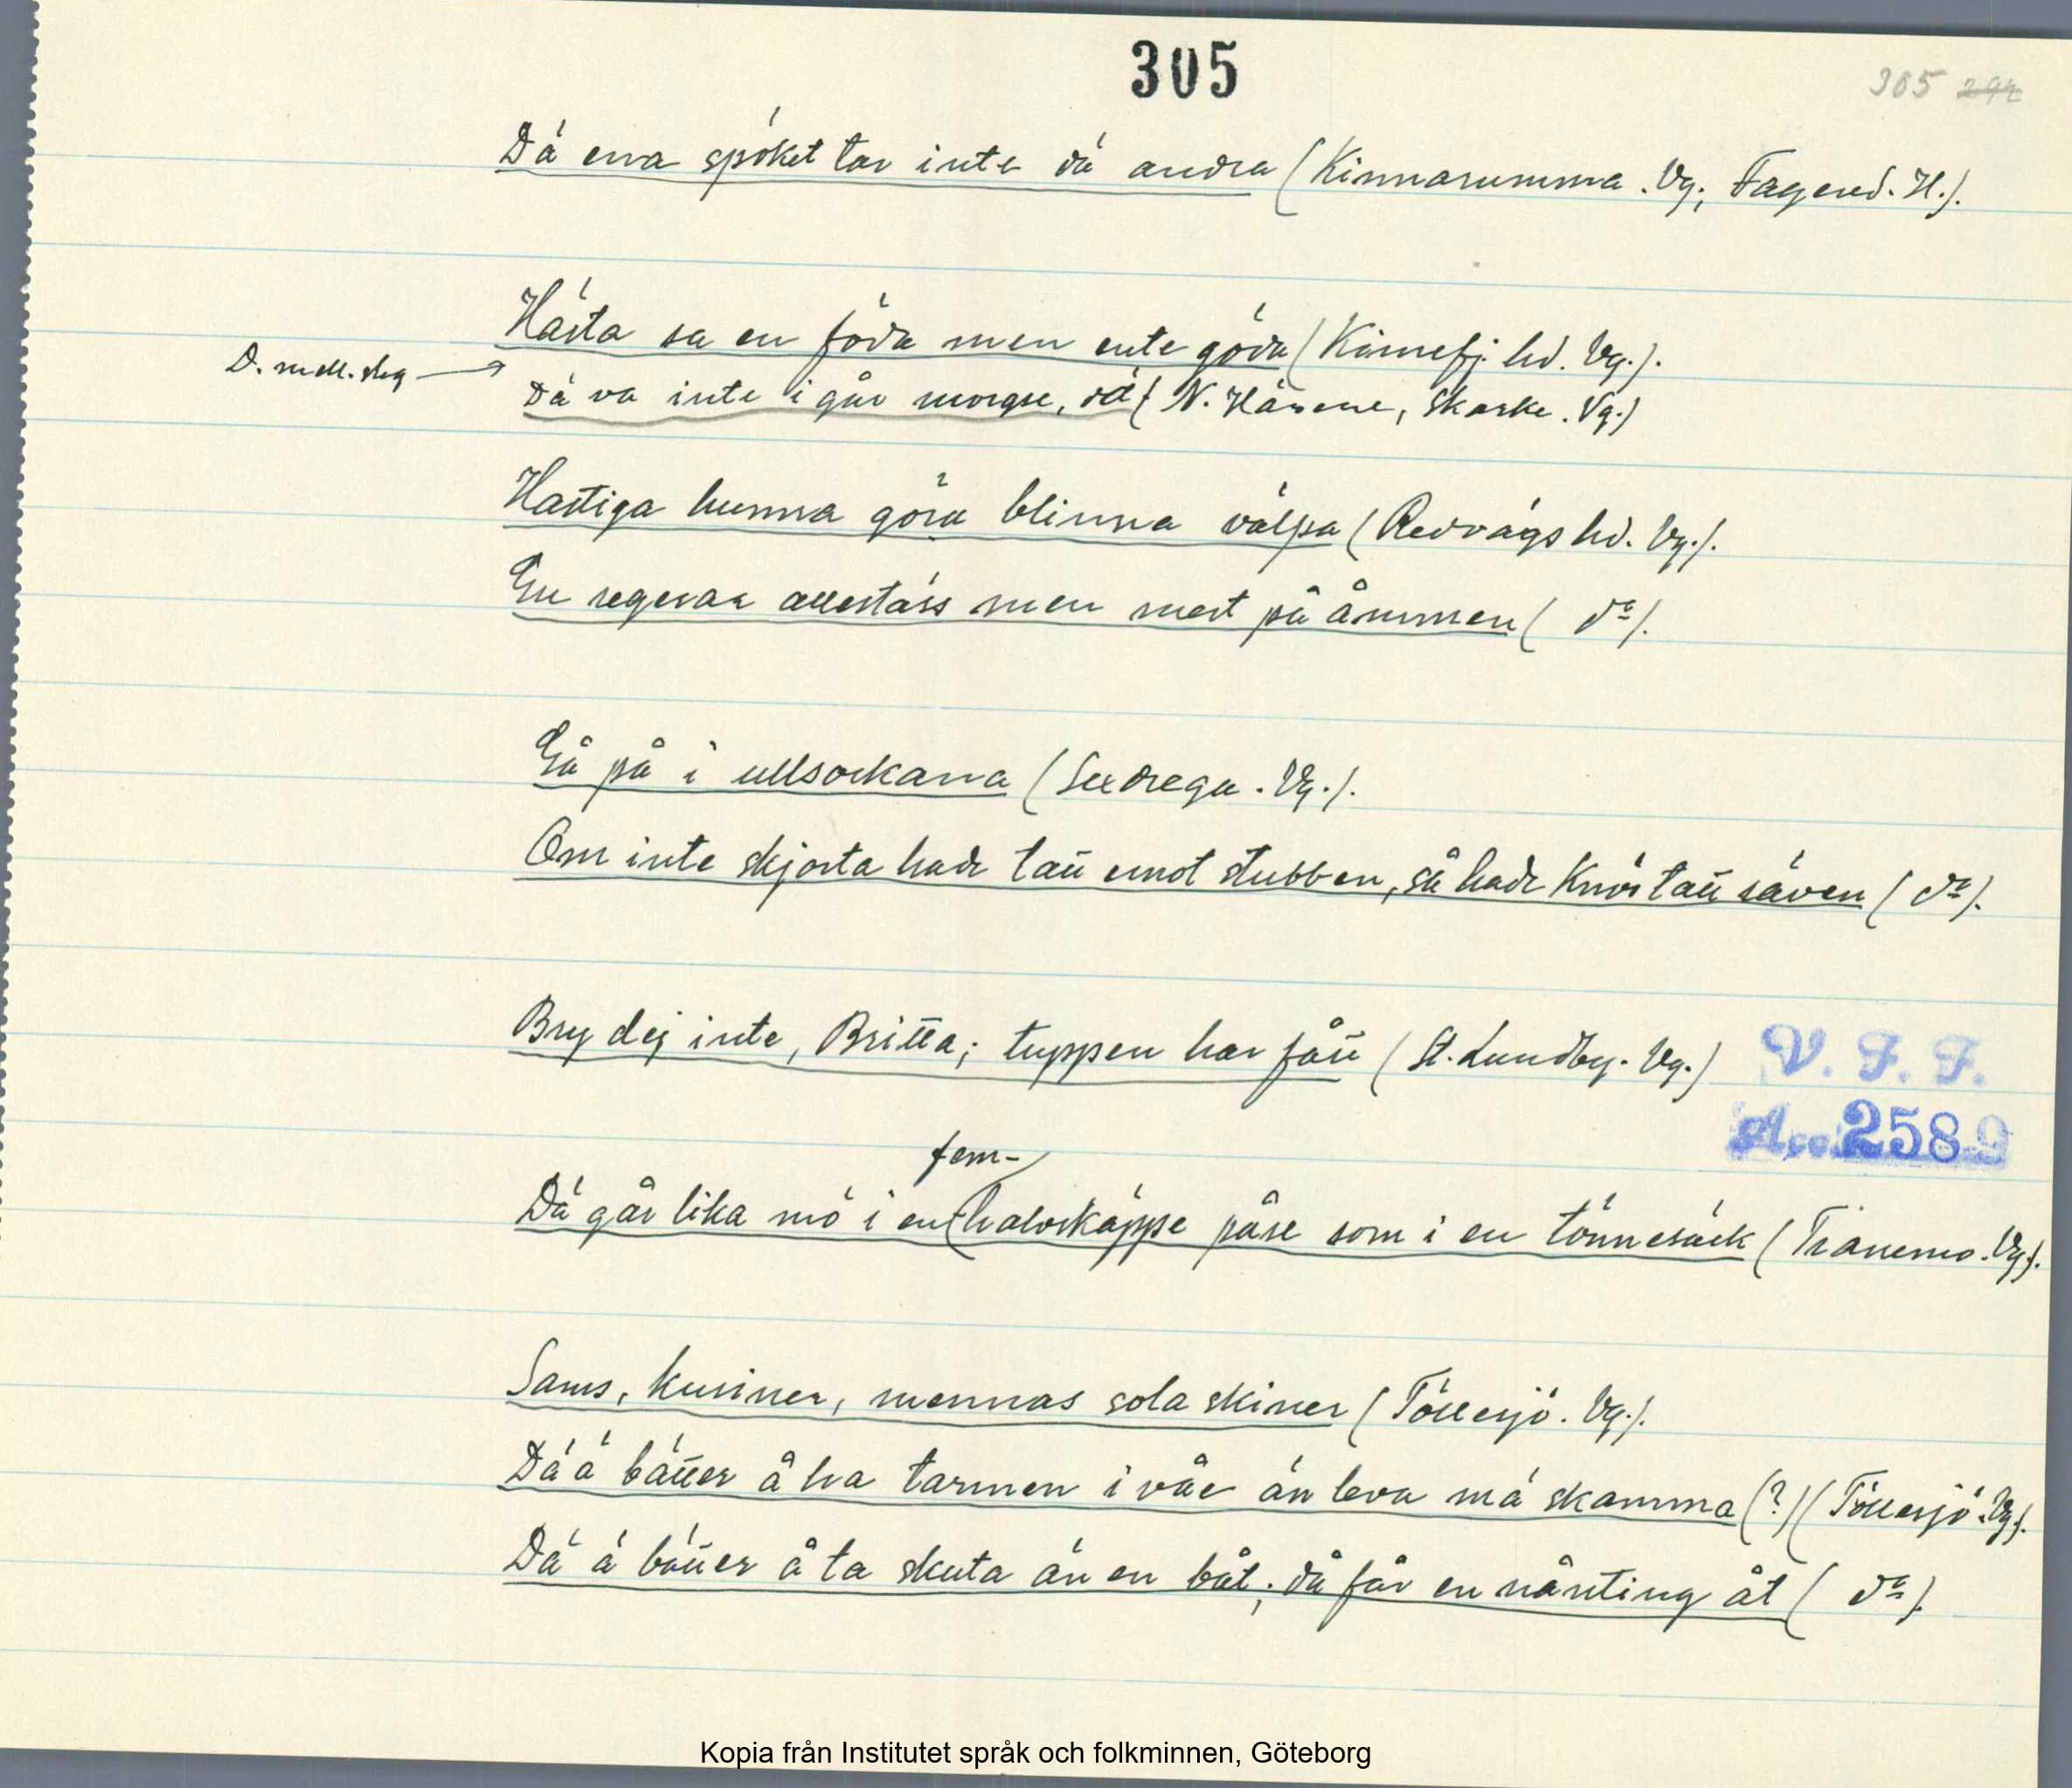 305
305 292
Dä ena spöket tar inte dä andra (Kinnarumma. Vg; Fagered. H.).
Hästa ska en föda men ente göda (Kinnefj. hd. Vg.).
D. mell. slag
Dä va inte i går morgse, dä (N. Härene, Skarke. Vg.)
Hastiga hunna göra blinna välpa (Redvägs hd. Vg.).
Gu regerar allestäss men mest på åmmen (do).
Gå på i ullsockarna (Sexdrega. Vg.).
Om inte skjorta hade tatt emot stubben, så hade Knös tatt räven (do).
Bry dej inte, Britta; tuppen har fått (St. Lundby. Vg.)
V. F. F.
Acc. 2589
fem-
Dä går lika mö i en halvskäppe påse som i en tönnesäck (Tranemo. Vg.).
Sams, kusiner, mennas sola skiner (Töllesjö. Vg.).
Dä ä bätter å ha tarmen i våe än leva mä skamma (?) (Töllesjö. Vg.).
Dä ä bätter å ta skuta än en båt; då får en nånting åt (do).
Kopia från Institutet språk och folkminnen, Göteborg